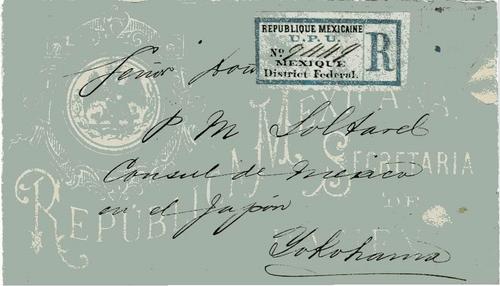 REPUBLIQUE MEXICAINE
U. P. U.
No. 9449 R
MEXIQUE
District Federal.
Señor Don
P M
Consul de Mexico
en el Japón
Yokohama
REPUBLICA MEXICANA
SECRETARIA
DE